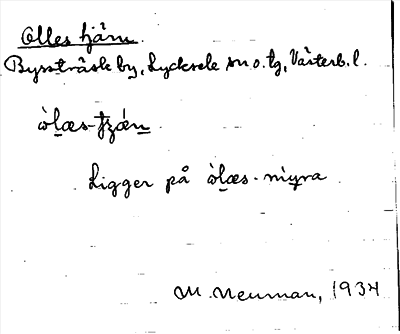 Olles tjärn
Bysträsk by, Lycksele sn o. tg, Västerb. l.
òlæs-tjǽn
Ligger på òlæs-mỳra
M. Neuman, 1934